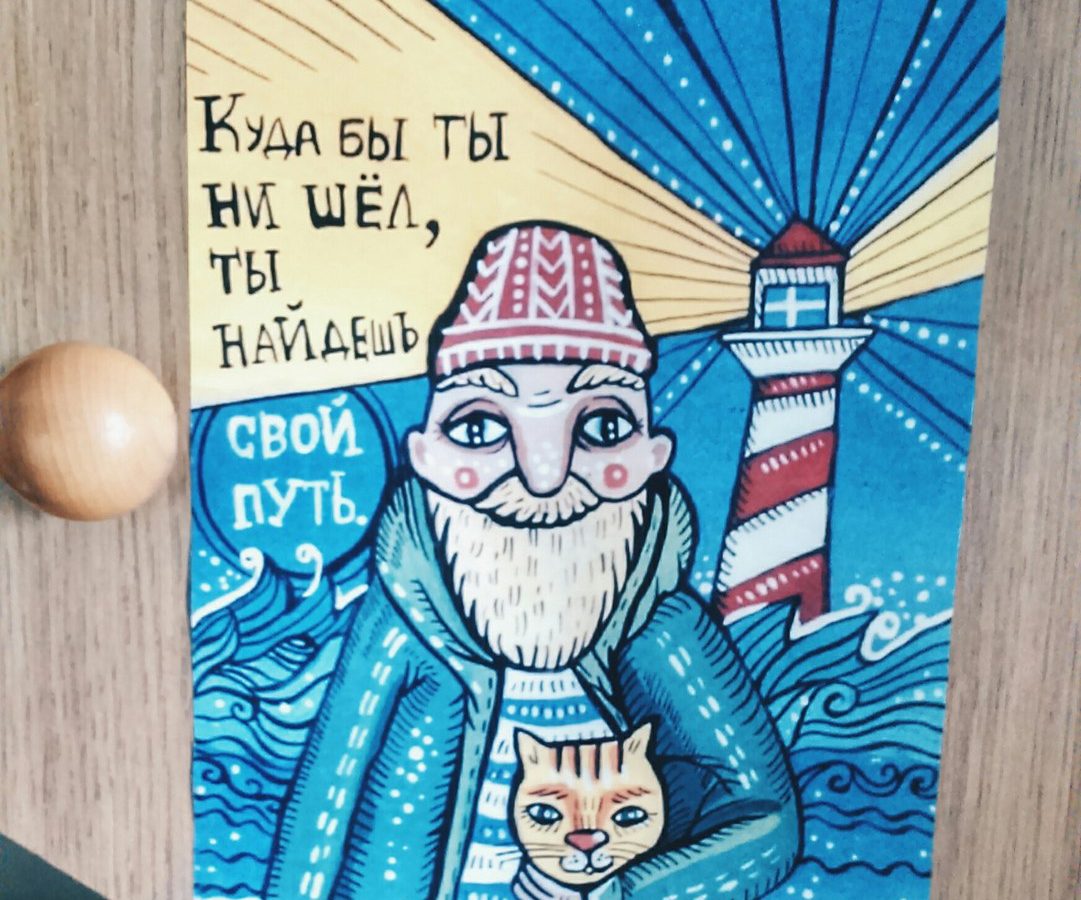 Куда бы ты
ни шёл,
ты
найдешь
свой
путь.